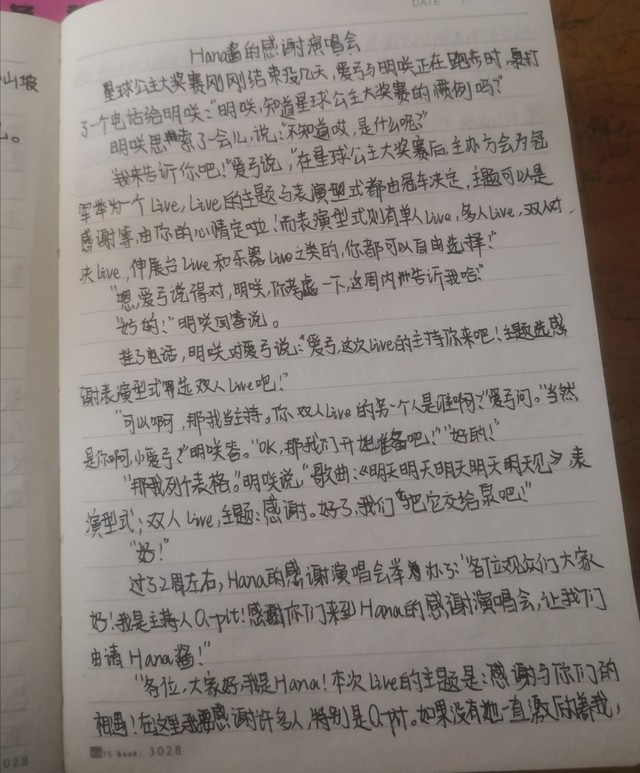 DATE
山坡
Hana酱的感谢演唱会
星球公主大奖赛刚刚结束没几天，爱弓与明咲正在跑步时，泉打
了一个电话给明咲："明咲，知道星球公主大奖赛的惯例吗？"
明咲思索了一会儿，说："不知道哎，是什么呢？"
"我来告诉你吧！"爱弓说，"在星球公主大奖赛后，主办方会为冠
军举办一个Live，Live的主题与表演型式都由冠军决定，主题可以是
感谢等，由你的心情定啦！而表演型式则有单人Live，多人Live，双人对
决Live，伸展台Live和乐器Live之类的，你都可以自由选择！"
"嗯，爱弓说得对，明咲，你考虑一下，这周内告诉我哈！"
"好的！"明咲回答说。
挂了电话，明咲对爱弓说："爱弓，这次Live的主持你来吧！主题选感
谢表演型式选双人Live吧！"
"可以啊，那我当主持。你双人Live的另一个人是谁啊？"爱弓问。"当然
是你啊，小爱弓！"明咲答。"OK，那我们开始准备吧！""好的！"
"那我列个表格。"明咲说，"歌曲：《明天明天明天明天明天见》，表
演型式：双人Live，主题：感谢。好了，我们把它交给泉吧！"
"好！"
过了2周左右，Hana的感谢演唱会举办了："各位观众们大家
好！我是主持人Q-pit！感谢你们来到Hana的感谢演唱会，让我们
由请Hana酱！"
"各位，大家好，我是Hana！本次Live的主题是：感谢与你们的
相遇！在这里我要感谢许多人，特别是Q-pit。如果没有她一直激励着我，
TS Book. 3028
028